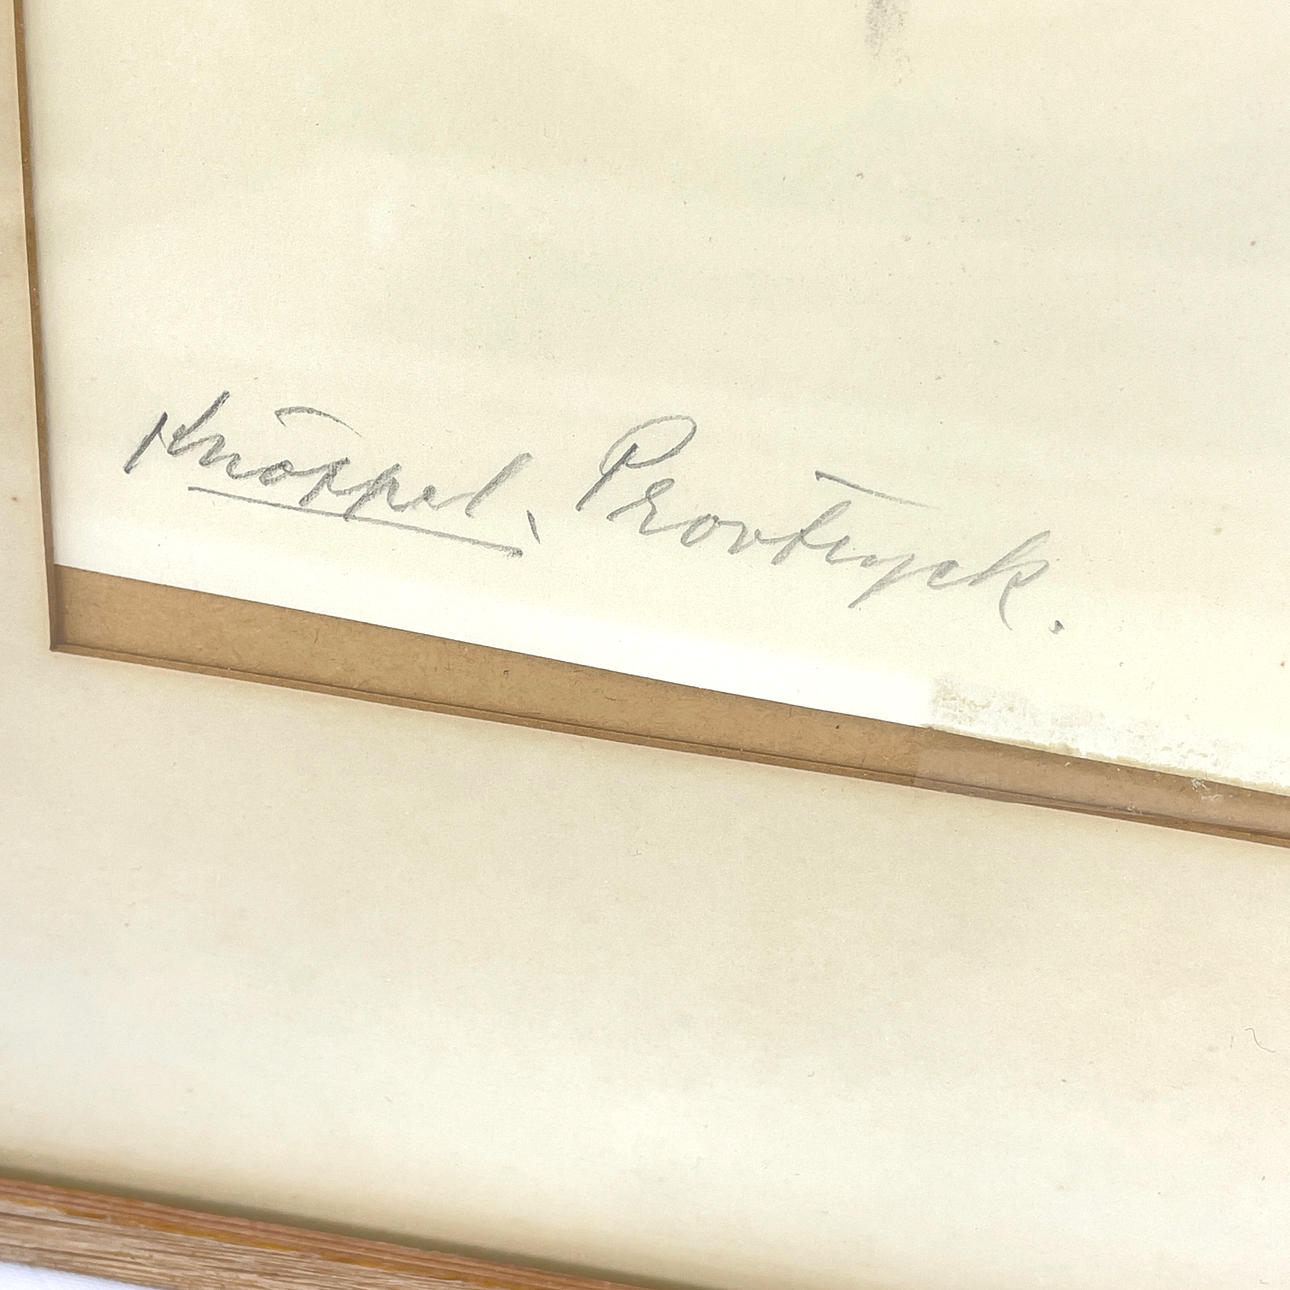 Knöppel, Provtryck.